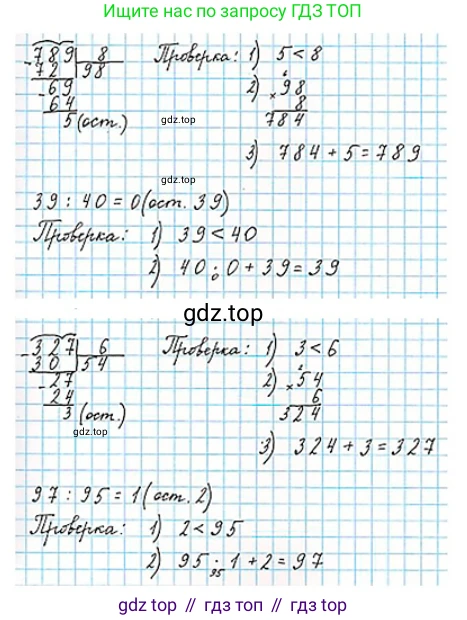 Ищите нас по запросу ГДЗ ТОП
- 789 | 8
72 | 98
- 69
64
5 (ост.)
Проверка: 1) 5 < 8
2) 6
× 98
8
784
3) 784 + 5 = 789
gdz.top
39 : 40 = 0 (ост. 39)
Проверка: 1) 39 < 40
2) 40 · 0 + 39 = 39
0
gdz.top
- 327 | 6
30 | 54
- 27
24
3 (ост.)
Проверка: 1) 3 < 6
2) 2
× 54
6
324
3) 324 + 3 = 327
gdz.top
97 : 95 = 1 (ост. 2)
Проверка: 1) 2 < 95
2) 95 · 1 + 2 = 97
95
gdz.top // гдз топ // гдз.топ